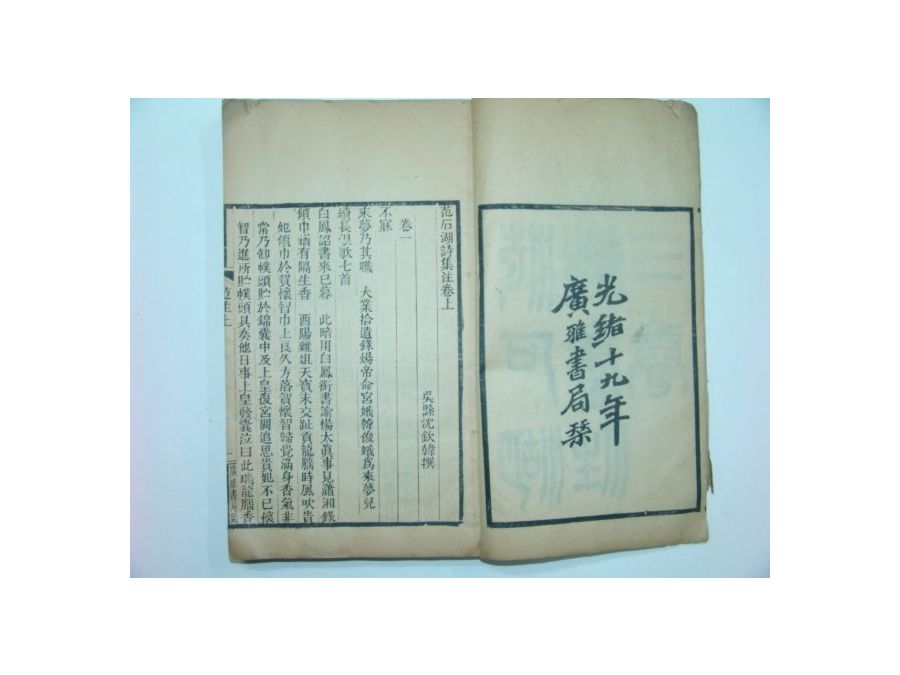 光緒十九年
廣雅書局栞
范石湖詩集注卷上
吳縣沈欽韓撰
卷一
不寐
來夢乃其職 大業拾遺錄煬帝命宮娥韓俊娥爲來夢兒
續長恨歌七首
白鳳詔書來已暮 此暗用白鳳銜書諭楊太眞事見瀟湘錄
領巾猶有隔生香 酉陽雜俎天寶末交趾貢龍腦時風吹貴
妃領巾於賀懷智巾上良久方落賀懷智歸覺滿身香氣非
常乃卸幞頭貯於錦囊中及上皇復宮闕追思貴妃不已懷
智乃進所貯幞頭具奏他日事上皇發囊泣曰此瑞龍腦香
范注上
一
廣雅書局栞